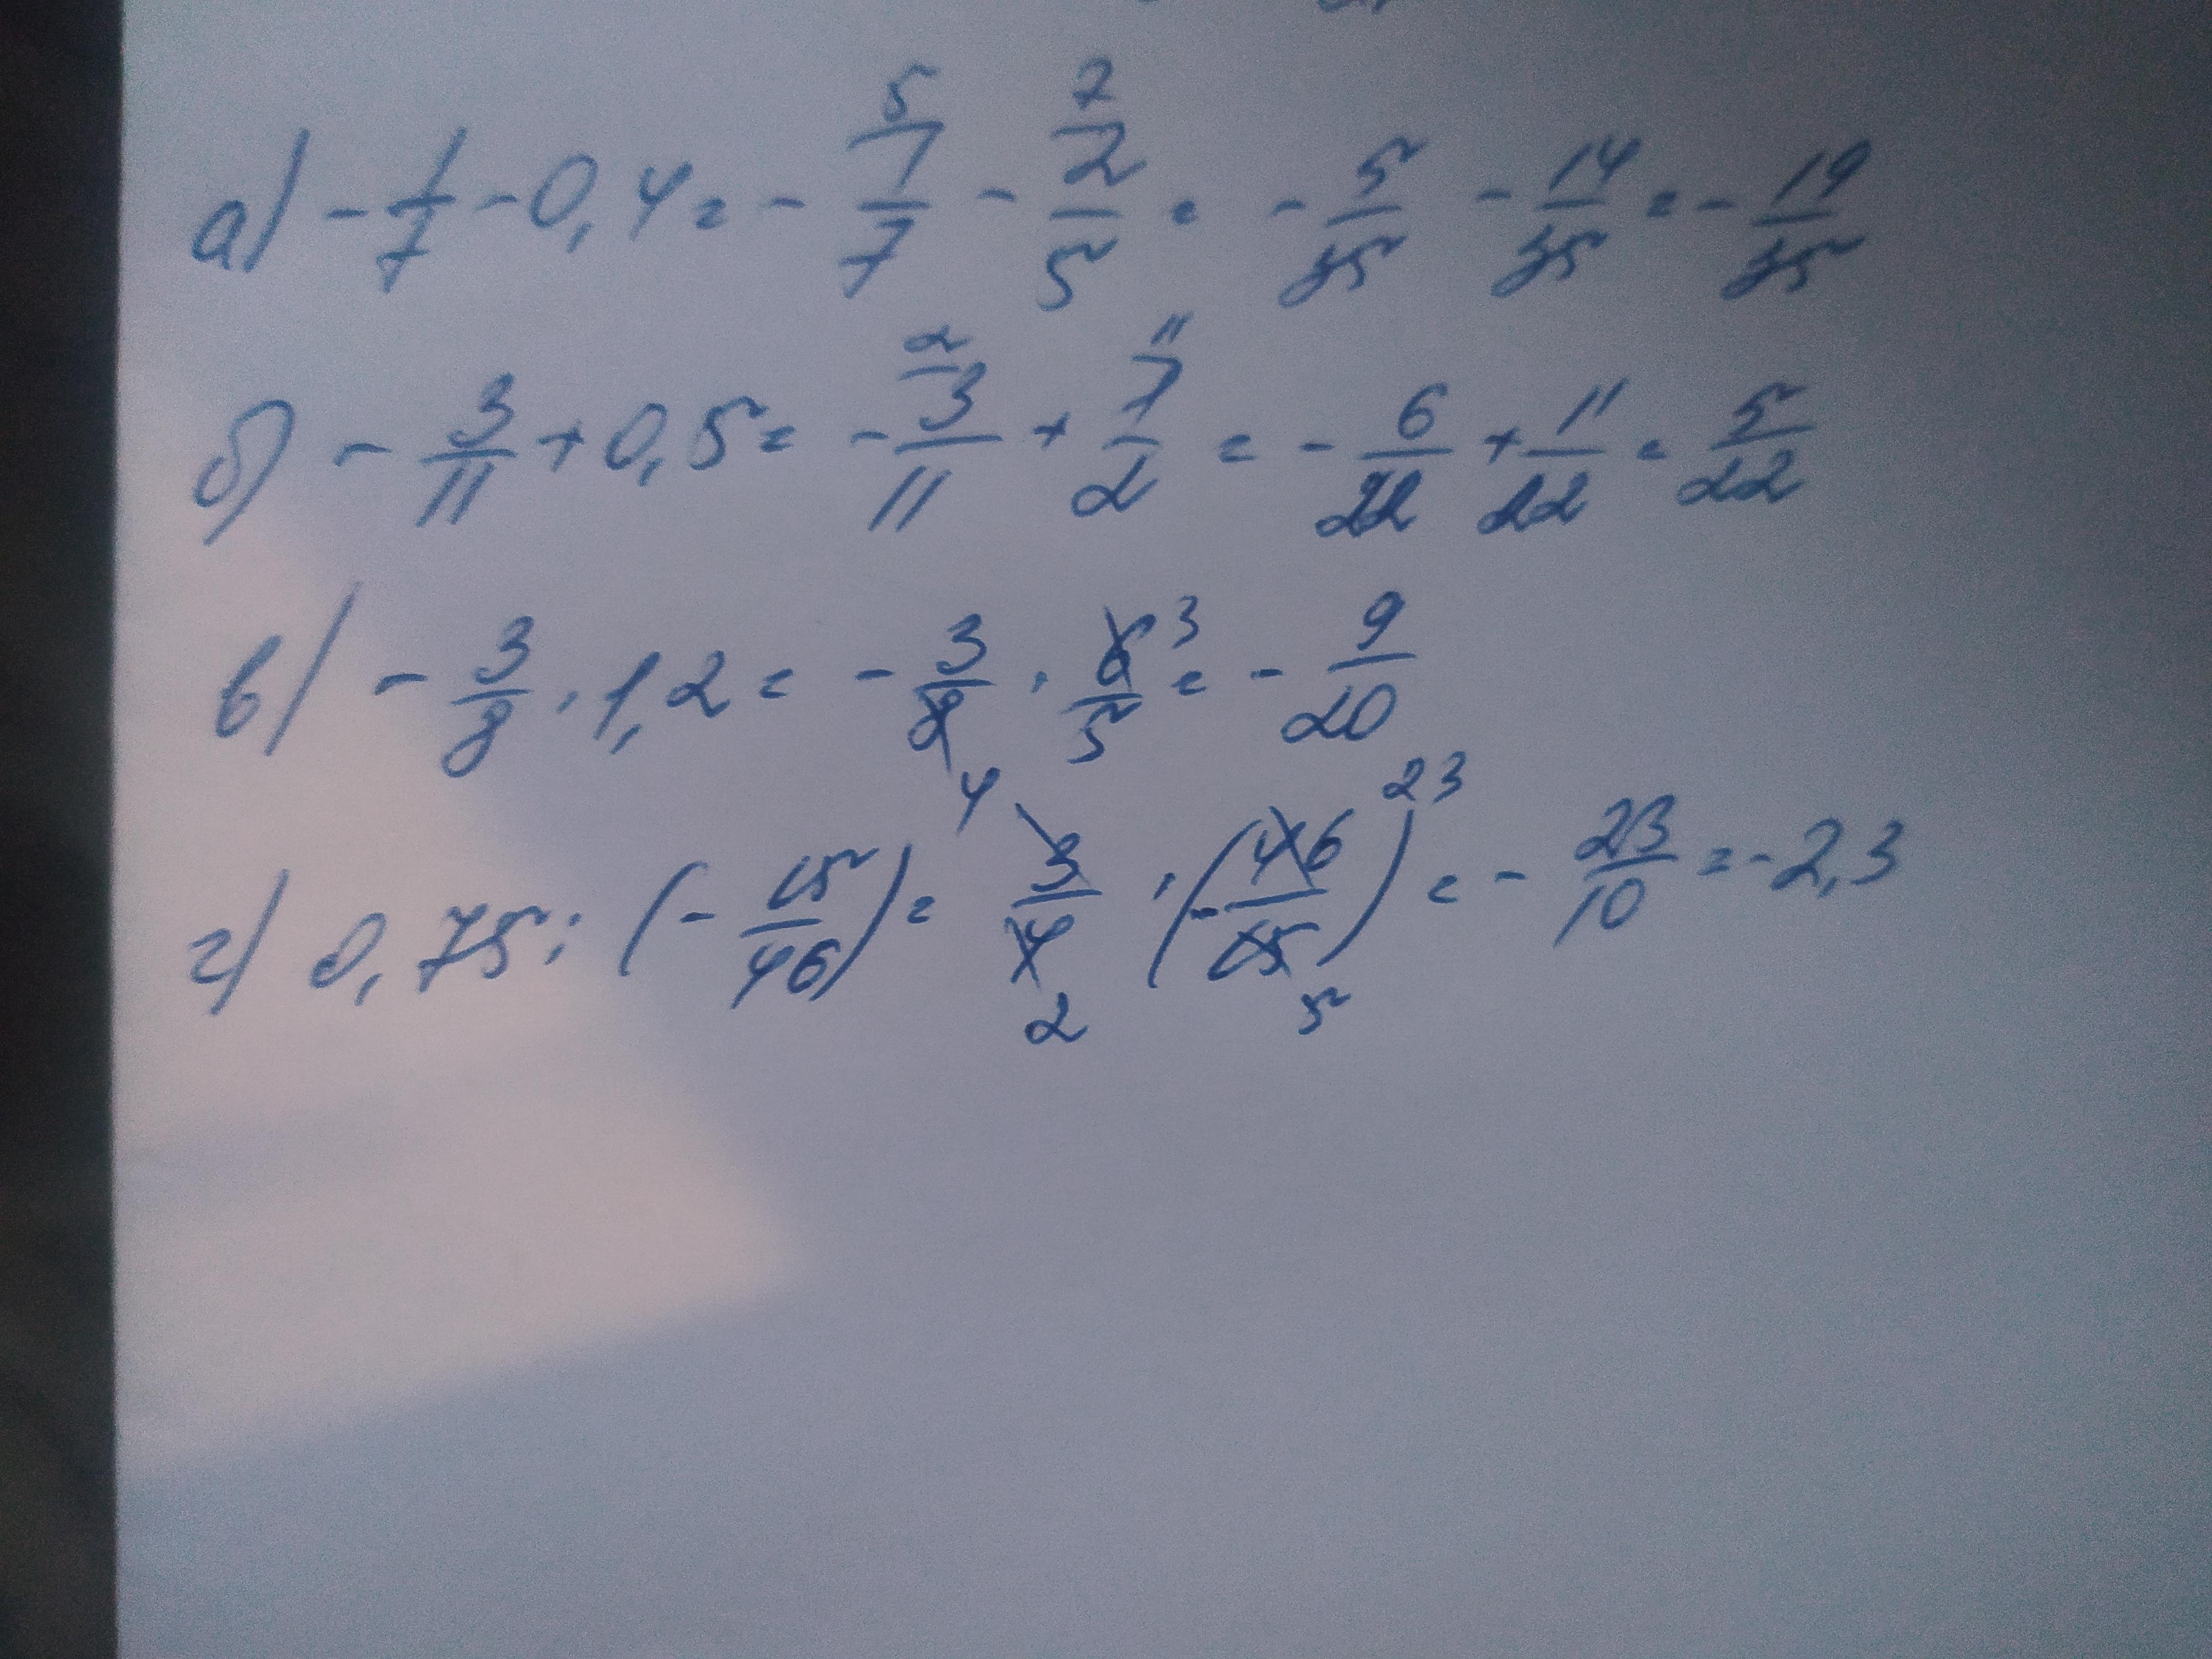 а) - 1/7 - 0,4 = - 5/ 1/7 - 7/ 2/5 = - 5/35 - 14/35 = - 19/35
б) - 3/11 + 0,5 = - 2/ 3/11 + 11/ 1/2 = - 6/22 + 11/22 = 5/22
в) - 3/8 · 1,2 = - 3/8 4 · 6/5 3 = - 9/20
г) 0,75 : (- 15/46) = 3/4 2 · (- 46/15) 23 5 = - 23/10 = - 2,3